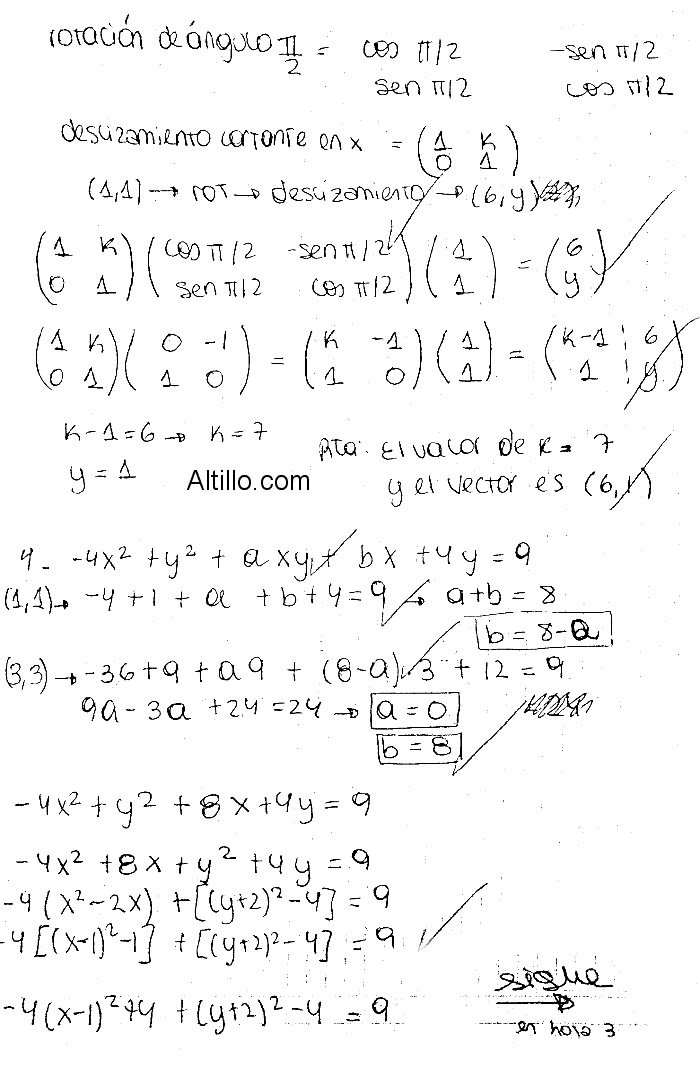 rotación de ángulo π/2 = cos π/2 -sen π/2
sen π/2 cos π/2
deslizamiento cortante en x = (1 k
0 1)
(1,1) → rot → deslizamiento → (6,y)
(1 k) (cos π/2 -sen π/2) (1) = (6)
(0 1) (sen π/2 cos π/2) (1) (y)
(1 k) (0 -1) = (k -1) (1) = (k-1 ¦ 6)
(0 1) (1 0) (1 0) (1) (1 ¦ y)
k-1=6 → k=7
y = 1
Altillo.com
Rta: El valor de k = 7
y el vector es (6,1)
4- -4x² + y² + axy + bx + 4y = 9
(1,1)→ -4+1+a +b+4=9 → a+b = 8
b = 8-a
(3,3) → -36+9+a9 + (8-a).3 +12=9
9a-3a +24=24 → a=0
b=8
-4x²+y²+8x+4y=9
-4x²+8x+y²+4y=9
-4(x²-2x) +[(y+2)²-4]=9
-4[(x-1)²-1] +[(y+2)²-4] =9
-4(x-1)²+4 +(y+2)²-4 =9
sigue
en hoja 3